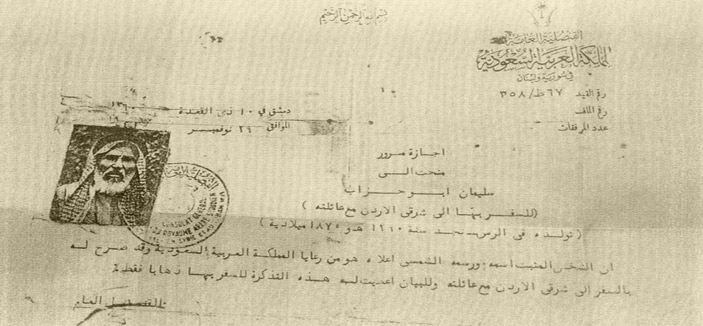 بسم الله الرحمن الرحيم
القنصلية العامة
للمملكة العربية السعودية
في سورية ولبنان
رقم القيد ٦٧ط/٣٥٨
رقم الملف
عدد المرفقات
دمشق في ١٠ ذى القعدة
الموافق ٢٩ نوفمبر
اجازة مرور
منحت الى
سليمان ابو حزاب
(للسفر بها الى شرقى الاردن مع عائلته)
(تولده فى الرس بنجد سنة ١٢٩٠ هـ و ١٨٧٠ ميلادية)
ان الشخص المثبت اسمه ورسمه الشمسى اعلاه هو من رعايا المملكة العربية السعودية وقد صرح له
بالسفر الى شرقى الاردن مع عائلته وللبيان اعطيت له هذه التذكرة للسفر بها ذهابا فقط
القنصل العام
CONSULAT GENERAL